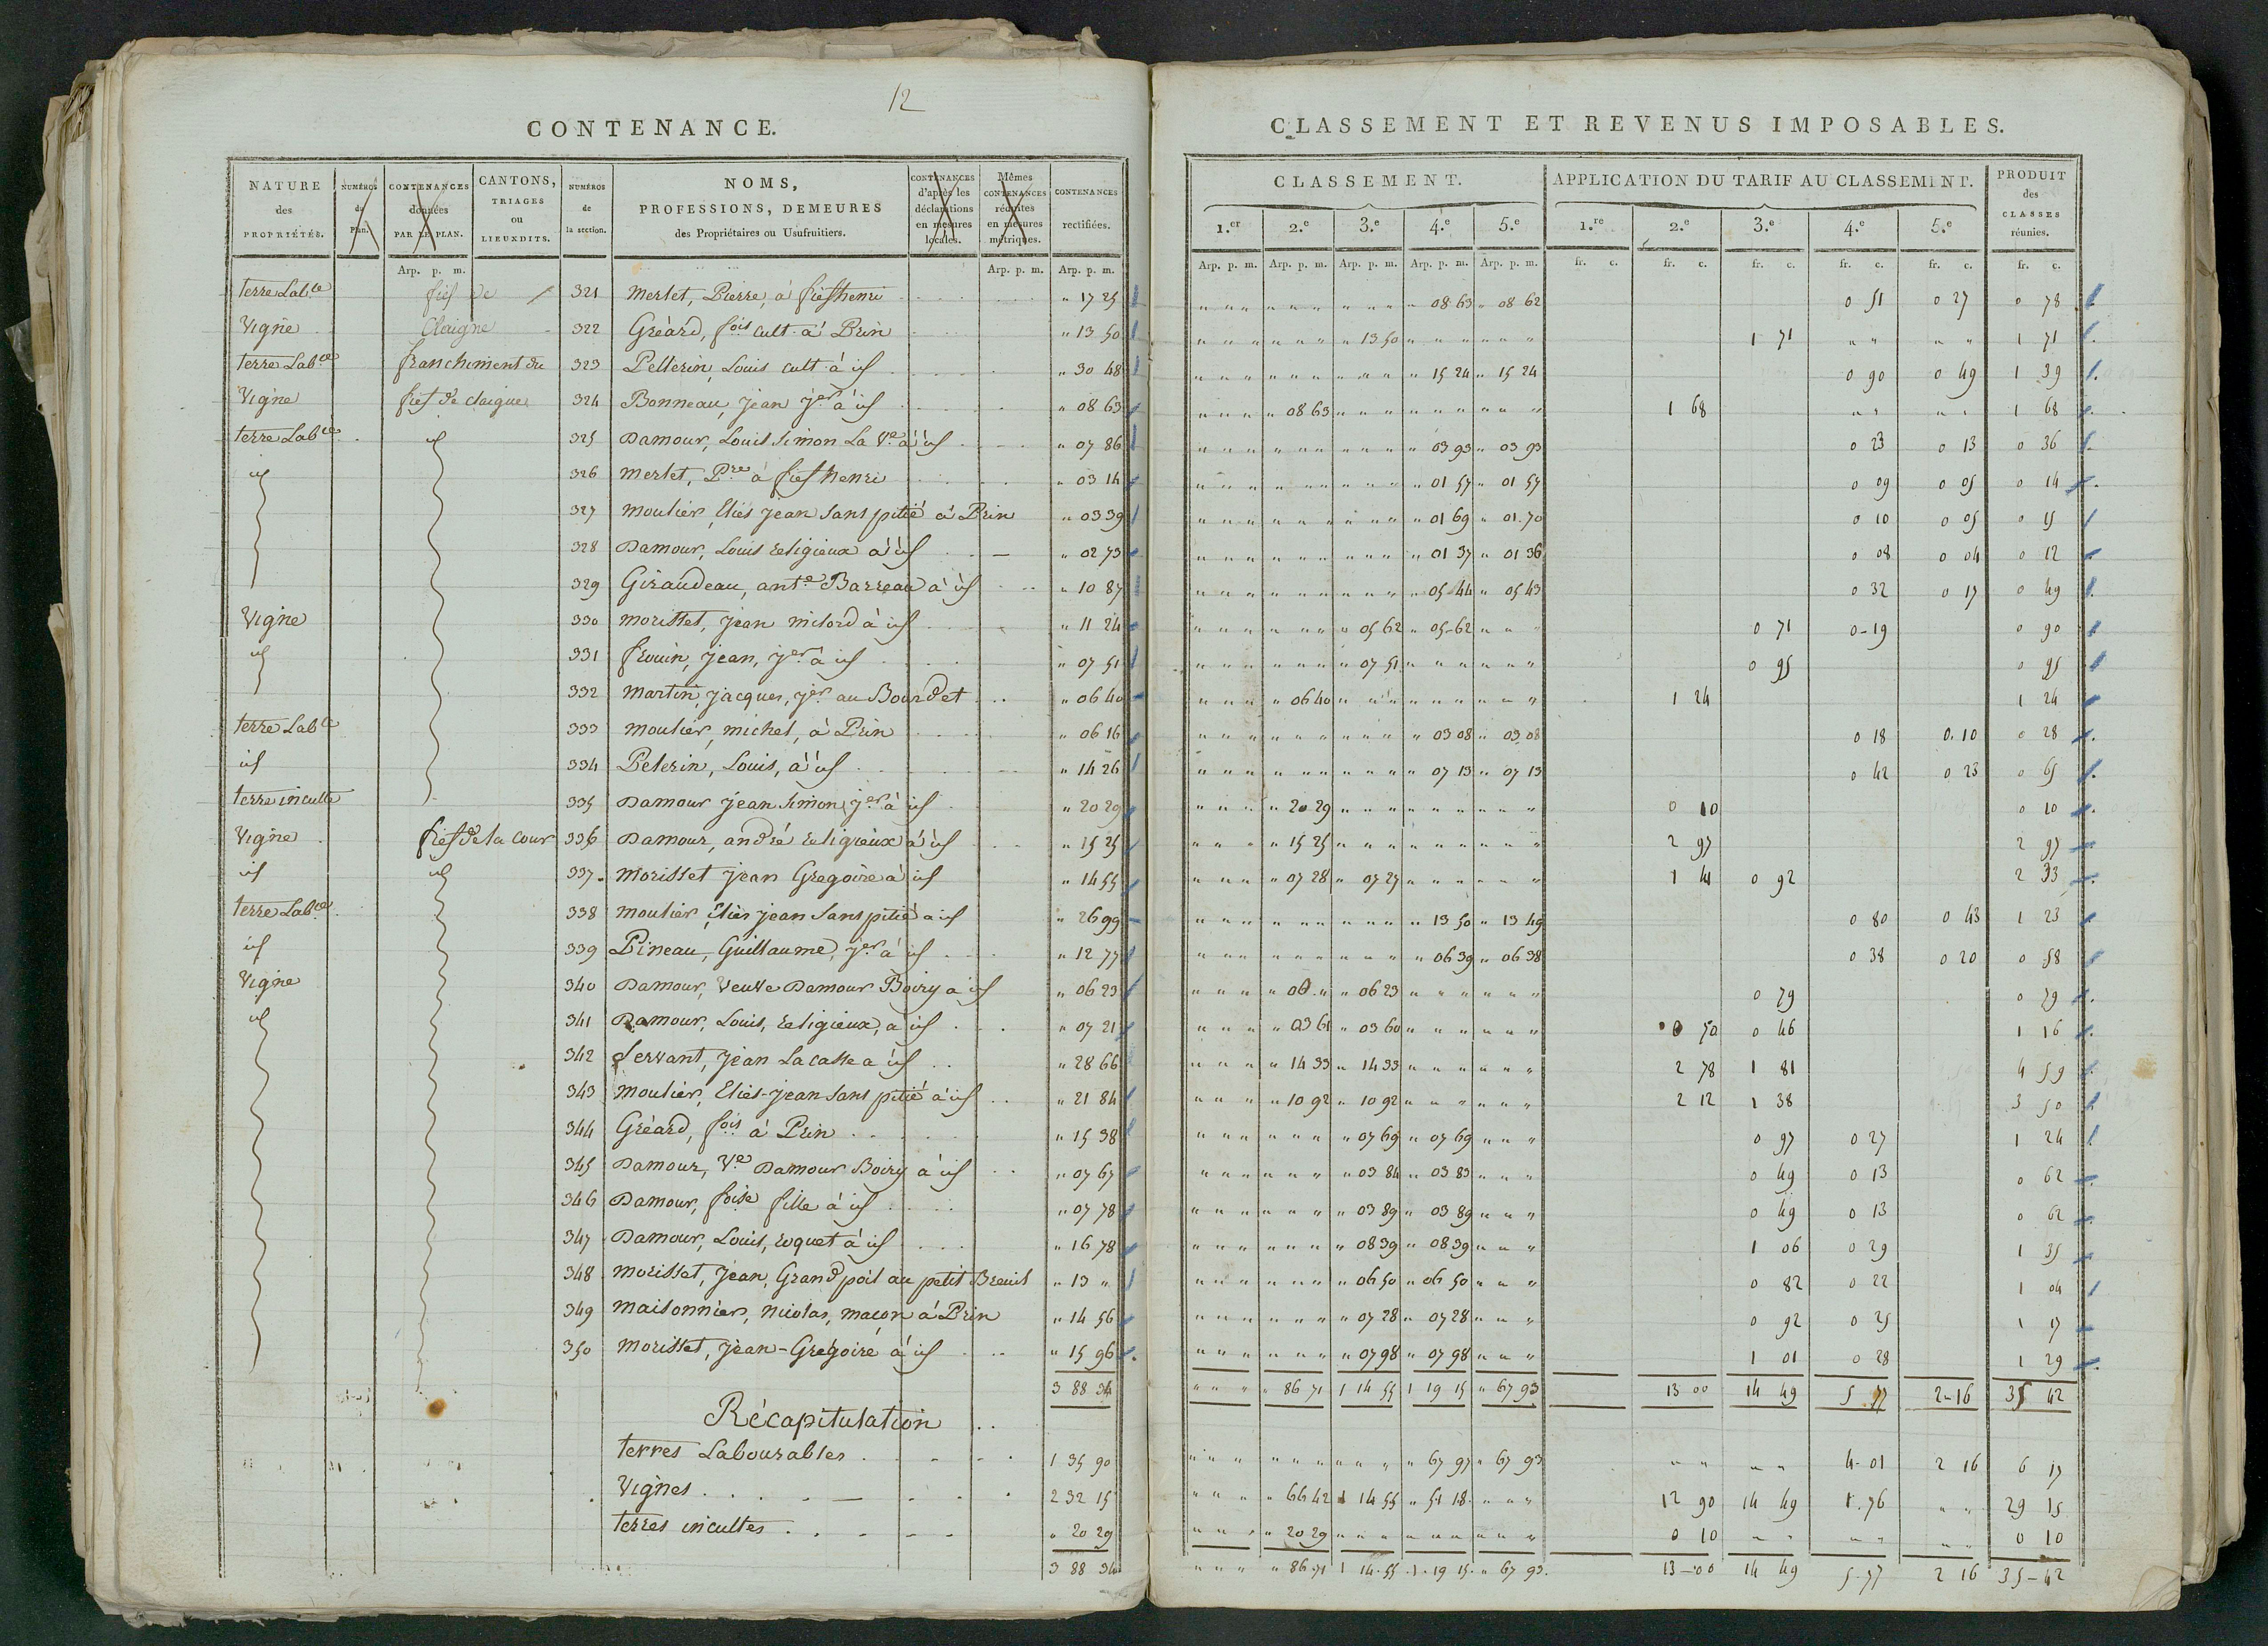 12
CONTENANCE.
NATURE des PROPRIÉTÉS. | NUMÉROS du Plan. | CONTENANCES données PAR LE PLAN. | CANTONS, TRIAGES ou LIEUXDITS. | NUMÉROS de la section. | NOMS, PROFESSIONS, DEMEURES des Propriétaires ou Usufruitiers. | CONTENANCES d'après les déclarations en mesures locales. | Mêmes CONTENANCES réduites en mesures métriques. | CONTENANCES rectifiées.
Arp. p. m. | Arp. p. m. | Arp. p. m.
terre Lab.le fief de 321 Merlet, Pierre, à fief henri " 17 25
Vigne Claigne 322 Gréard, fois cult. à Prin " 13 50
terre Lab.le franchiment du 323 Pellerin, Louis cult. à id " 30 48
Vigne fief de claigne 324 Bonneau, Jean jer à id " 08 63
terre Lab.le id 325 Damour, Louis Simon La Ve à id " 07 86
id 326 Merlet, Pre à fief henri " 03 14
327 Moulier, Elies Jean Sans pitié à Prin " 03 39
328 Damour, Louis religieux à id " 02 73
329 Giraudeau, ant.e Barreau à id " 10 87
Vigne 330 Morisset, Jean milord à id " 11 24
id 331 frouin, Jean, jer à id " 07 51
332 Martin, Jacques, jer au Bourdet " 06 40
terre Lab.le 333 Moulier, michel, à Prin " 06 16
id 334 Pelerin, Louis, à id " 14 26
terre inculte 335 Damour Jean Simon, jer à id " 20 29
Vigne fief de la cour 336 Damour, andré religieux à id " 15 25
id id 337 Morisset Jean Gregoire à id " 14 55
terre Lab.le 338 Moulier, Elies Jean Sans pitié à id " 26 99
id 339 Pineau, Guillaume, jer à id " 12 77
Vigne 340 Damour, Veuve Damour Boiry à id " 06 23
id 341 Damour, Louis, religieux, à id " 07 21
342 Servant, Jean Lacasse à id " 28 66
343 Moulier, Elies-Jean Sans pitié à id " 21 84
344 Gréard, fois à Prin " 15 38
345 Damour, Ve Damour Boiry à id " 07 67
346 Damour, foise fille à id " 07 78
347 Damour, Louis, roquet à id " 16 78
348 Morisset, Jean, Grand poil au petit Breuil " 13 "
349 Maisonnier, Nicolas, maçon à Prin " 14 56
350 Morisset, Jean-Grégoire à id " 15 96
3 88 34
Récapitulation
terres Labourables 1 35 90
Vignes 2 32 15
terres incultes " 20 29
3 88 34
CLASSEMENT ET REVENUS IMPOSABLES.
CLASSEMENT. | APPLICATION DU TARIF AU CLASSEMENT. | PRODUIT des CLASSES réunies.
1.er | 2.e | 3.e | 4.e | 5.e | 1.re | 2.e | 3.e | 4.e | 5.e
Arp. p. m. | Arp. p. m. | Arp. p. m. | Arp. p. m. | Arp. p. m. | fr. c. | fr. c. | fr. c. | fr. c. | fr. c. | fr. c.
" 08 63 " 08 62 0 51 0 27 0 78
" 13 50 1 71 1 71
" 15 24 " 15 24 0 90 0 49 1 39
" 08 63 1 68 1 68
" 03 93 " 03 93 0 23 0 13 0 36
" 01 57 " 01 57 0 09 0 05 0 14
" 01 69 " 01.70 0 10 0 05 0 15
" 01 37 " 01 36 0 08 0 04 0 12
" 05 44 " 05 43 0 32 0 17 0 49
" 05 62 " 05-62 0 71 0-19 0 90
" 07 51 0 95 0 95
" 06 40 1 24 1 24
" 03 08 " 03 08 0 18 0.10 0 28
" 07 13 " 07 13 0 42 0 23 0 65
" 20 29 0 10 0 10
" 15 25 2 97 2 97
" 07 28 " 07 27 1 41 0 92 2 33
" 13 50 " 13 49 0 80 0 43 1 23
" 06 39 " 06 38 0 38 0 20 0 58
" 06 23 0 79 0 79
" 03 61 " 03 60 0 70 0 46 1 16
" 14 33 " 14 33 2 78 1 81 4 59
" 10 92 " 10 92 2 12 1 38 3 50
" 07 69 " 07 69 0 97 0 27 1 24
" 03 84 " 03 83 0 49 0 13 0 62
" 03 89 " 03 89 0 49 0 13 0 62
" 08 39 " 08 39 1 06 0 29 1 35
" 06 50 " 06 50 0 82 0 22 1 04
" 07 28 " 07 28 0 92 0 25 1 17
" 07 98 " 07 98 1 01 0 28 1 29
" 86 71 1 14 55 1 19 15 " 67 93 13 00 14 49 5 77 2-16 35 42
" 67 97 " 67 93 4-01 2 16 6 17
" 66 42 1 14 55 " 51 18 12 90 14 49 1.76 29 15
" 20 29 0 10 0 10
" 86.71 1 14.55 1.19 15. " 67 93. 13-00 14 49 5-77 2 16 35-42